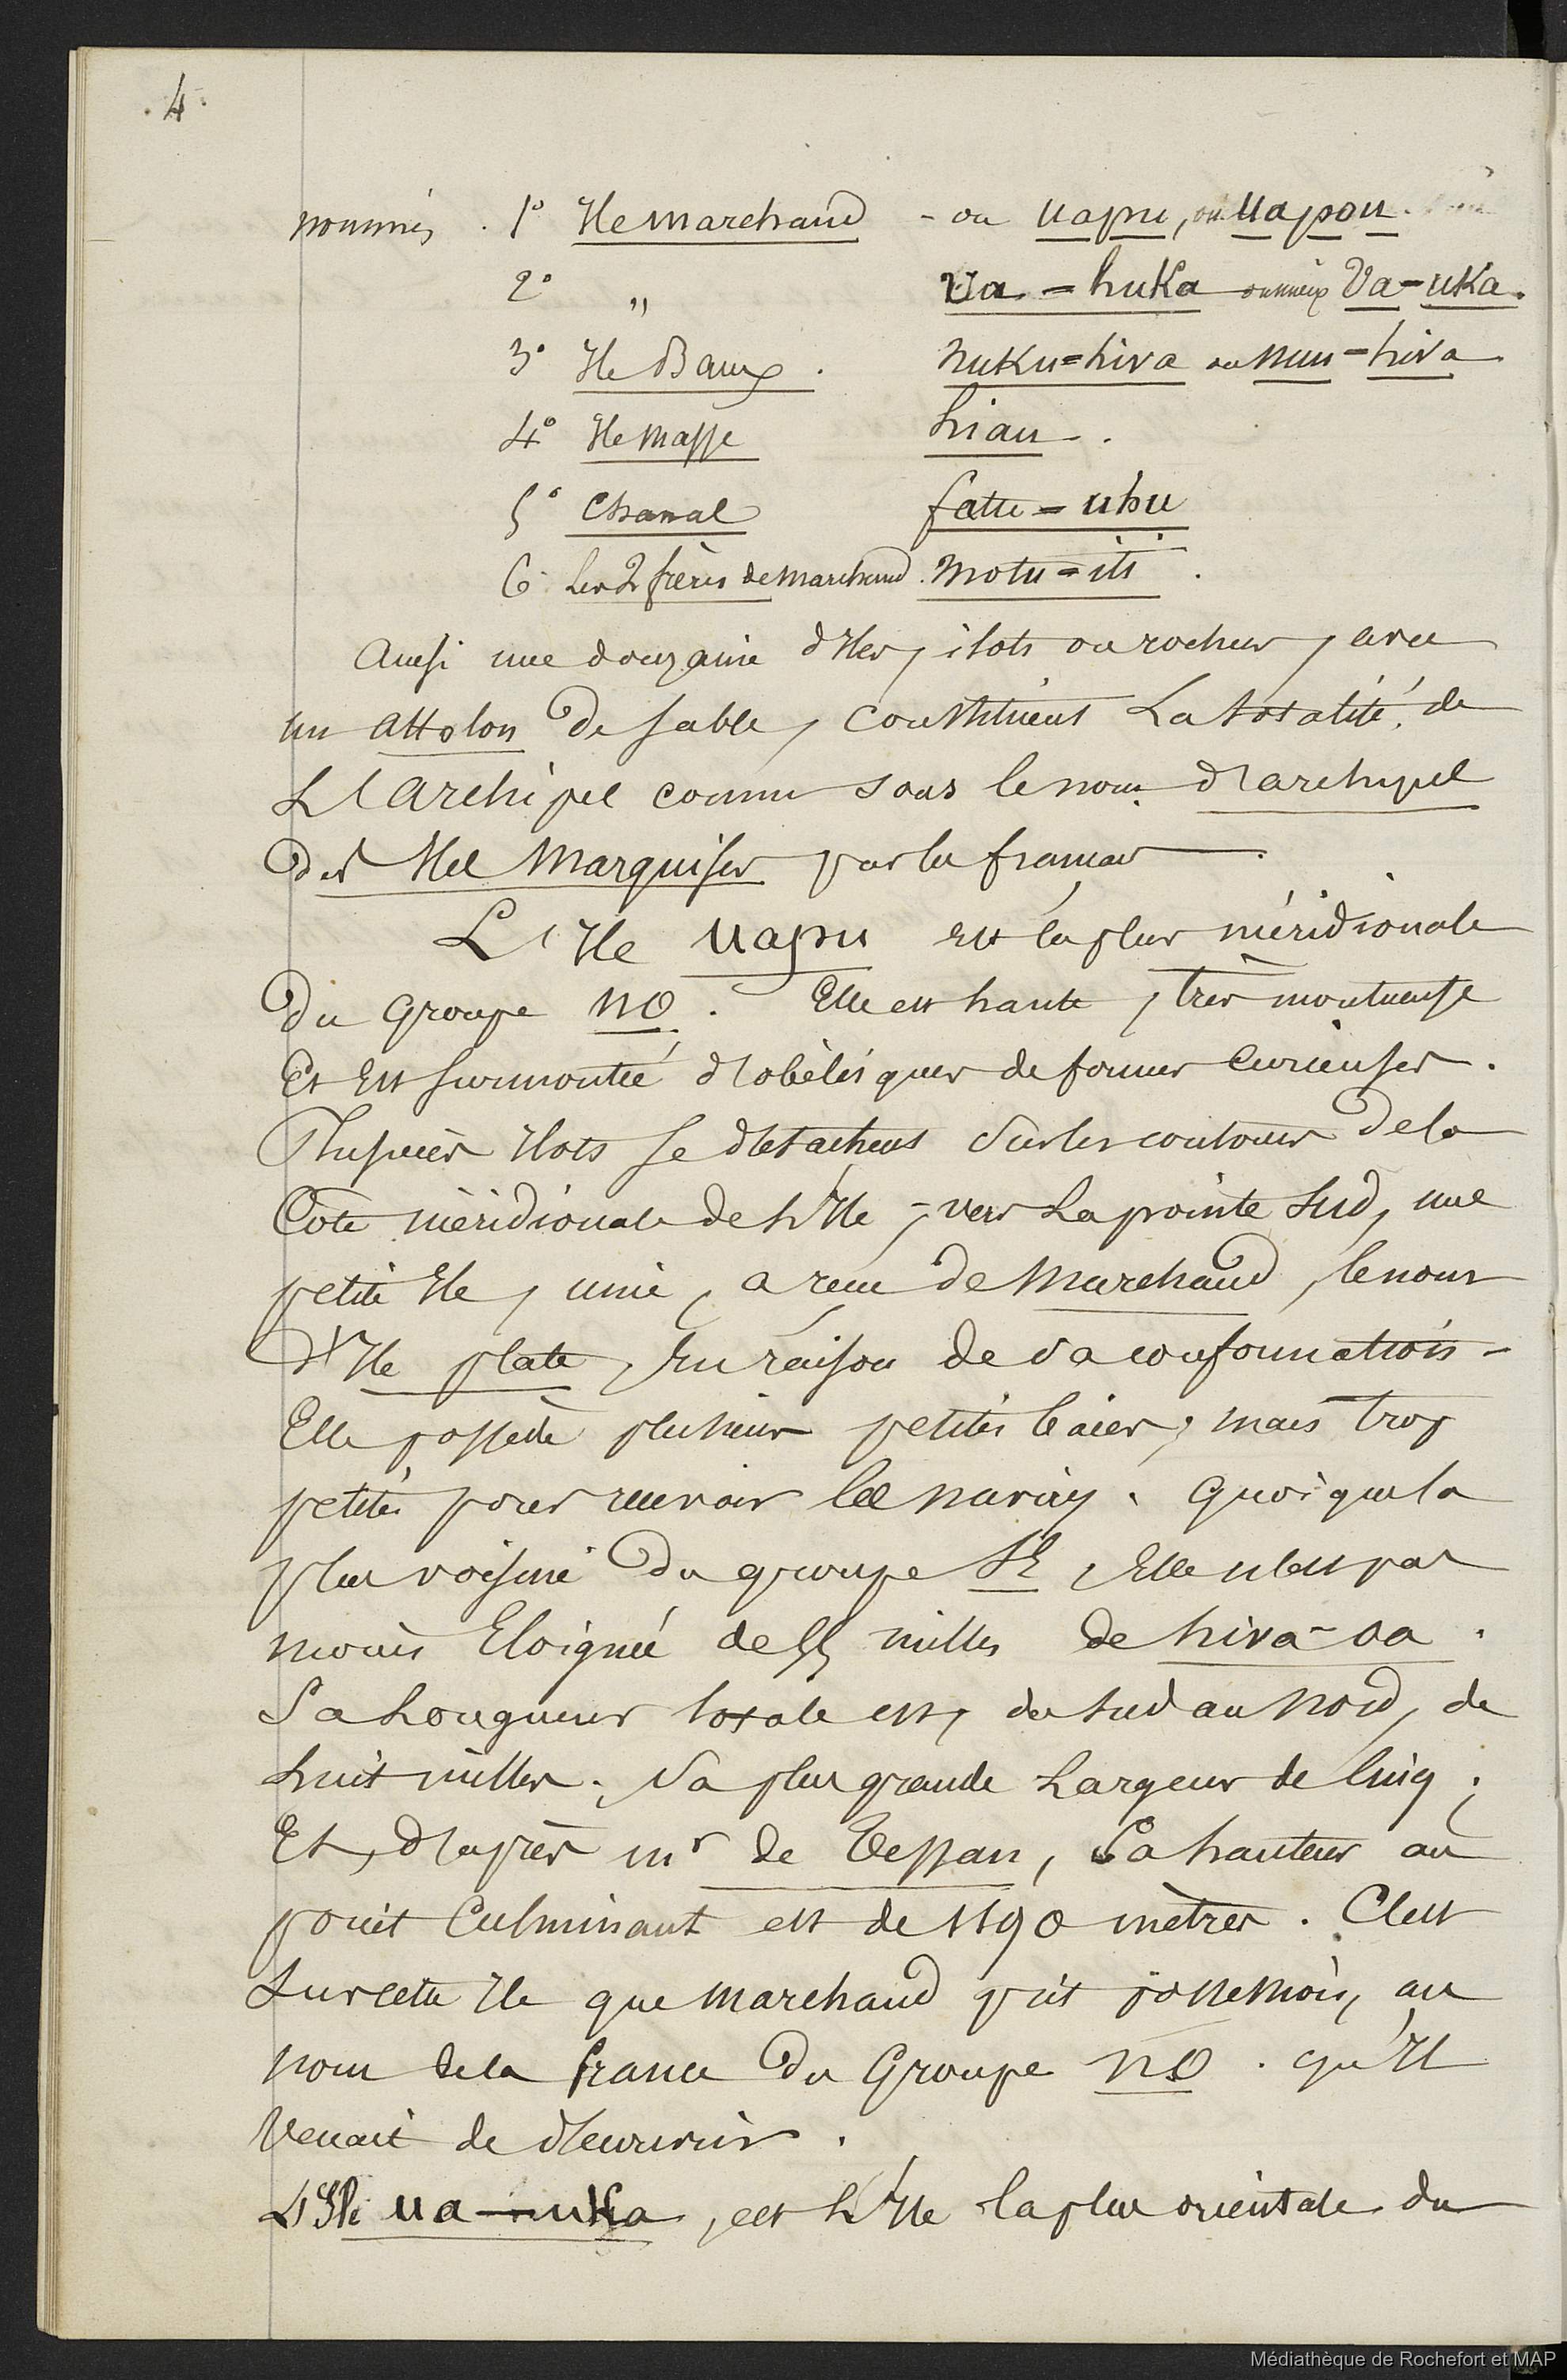 . 4 .
nommés . 1° Ile marchand - ou uapu, ou uapou.
2° " Ua = huka ou mieux Va-uka.
3° Ile Baux . nuku=hiva ou nuu-hiva
4° Ile Masse hiau .
5° Chanal fattu = uhu
6 Les 2 frères de marchand . motu = iti .
Ainsi une douzaine d'Iles, ilots ou rochers, avec
un attolon de sable, constituent La totalité de
L'Archipel connu sous le nom d'archipel
des Iles Marquises par les francais .
L'Ile uapu est la plus méridionale
du Groupe NO . Elle est haute, très montueuse
Et Est surmontée d'obélisques de formes curieuses .
Plusieurs Ilots se détachent sur les contours de la
Cote méridionale de L'Ile ; vers La pointe Sud, une
petite Ile, unie, a recu de Marchand, le nom
d'Ile plate, En raison de sa conformation -
Elle possède plusieurs petites baies, mais trop
petites pour recevoir les navires . quoique la
plus voisine du groupe SE, Elle n'est pas
moins Eloignée de 55 milles de hiva-oa .
Sa Longueur totale est, du sud au Nord, de
huit milles . Sa plus grande Largeur de Cinq ;
Et, d'après mr de Tessan, Sa hauteur au
point Culminant est de 1190 mètres . C'est
sur cette Ile que marchand prit possession, au
nom de la france du Groupe NO . qu'Il
Venait de découvrir .
L'Ile ua-uka, est L'Ile la plus orientale du
Médiathèque de Rochefort et MAP